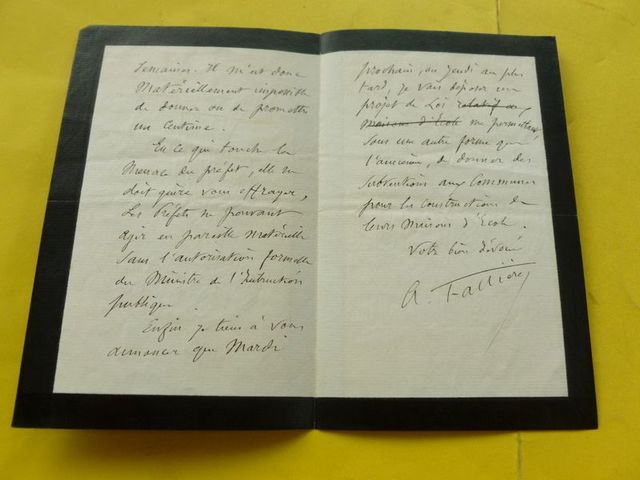 semaines. Il m'est donc
matériellement impossible
de donner ou de promettre
un centime.
En ce qui touche la
menace du préfet, elle ne
doit guère vous effrayer,
les Préfets ne pouvant
agir en pareille matière
sans l'autorisation formelle
du Ministre de l'Instruction
publique.
Enfin je tiens à vous
annoncer que Mardi
prochain, ou jeudi au plus
tard, je vais déposer un
projet de Loi relatif aux
maisons d'école me permettant,
sous une autre forme que
l'ancienne, de donner des
subventions aux Communes
pour la construction de
leurs maisons d'école.
Votre bien dévoué
A. Fallières